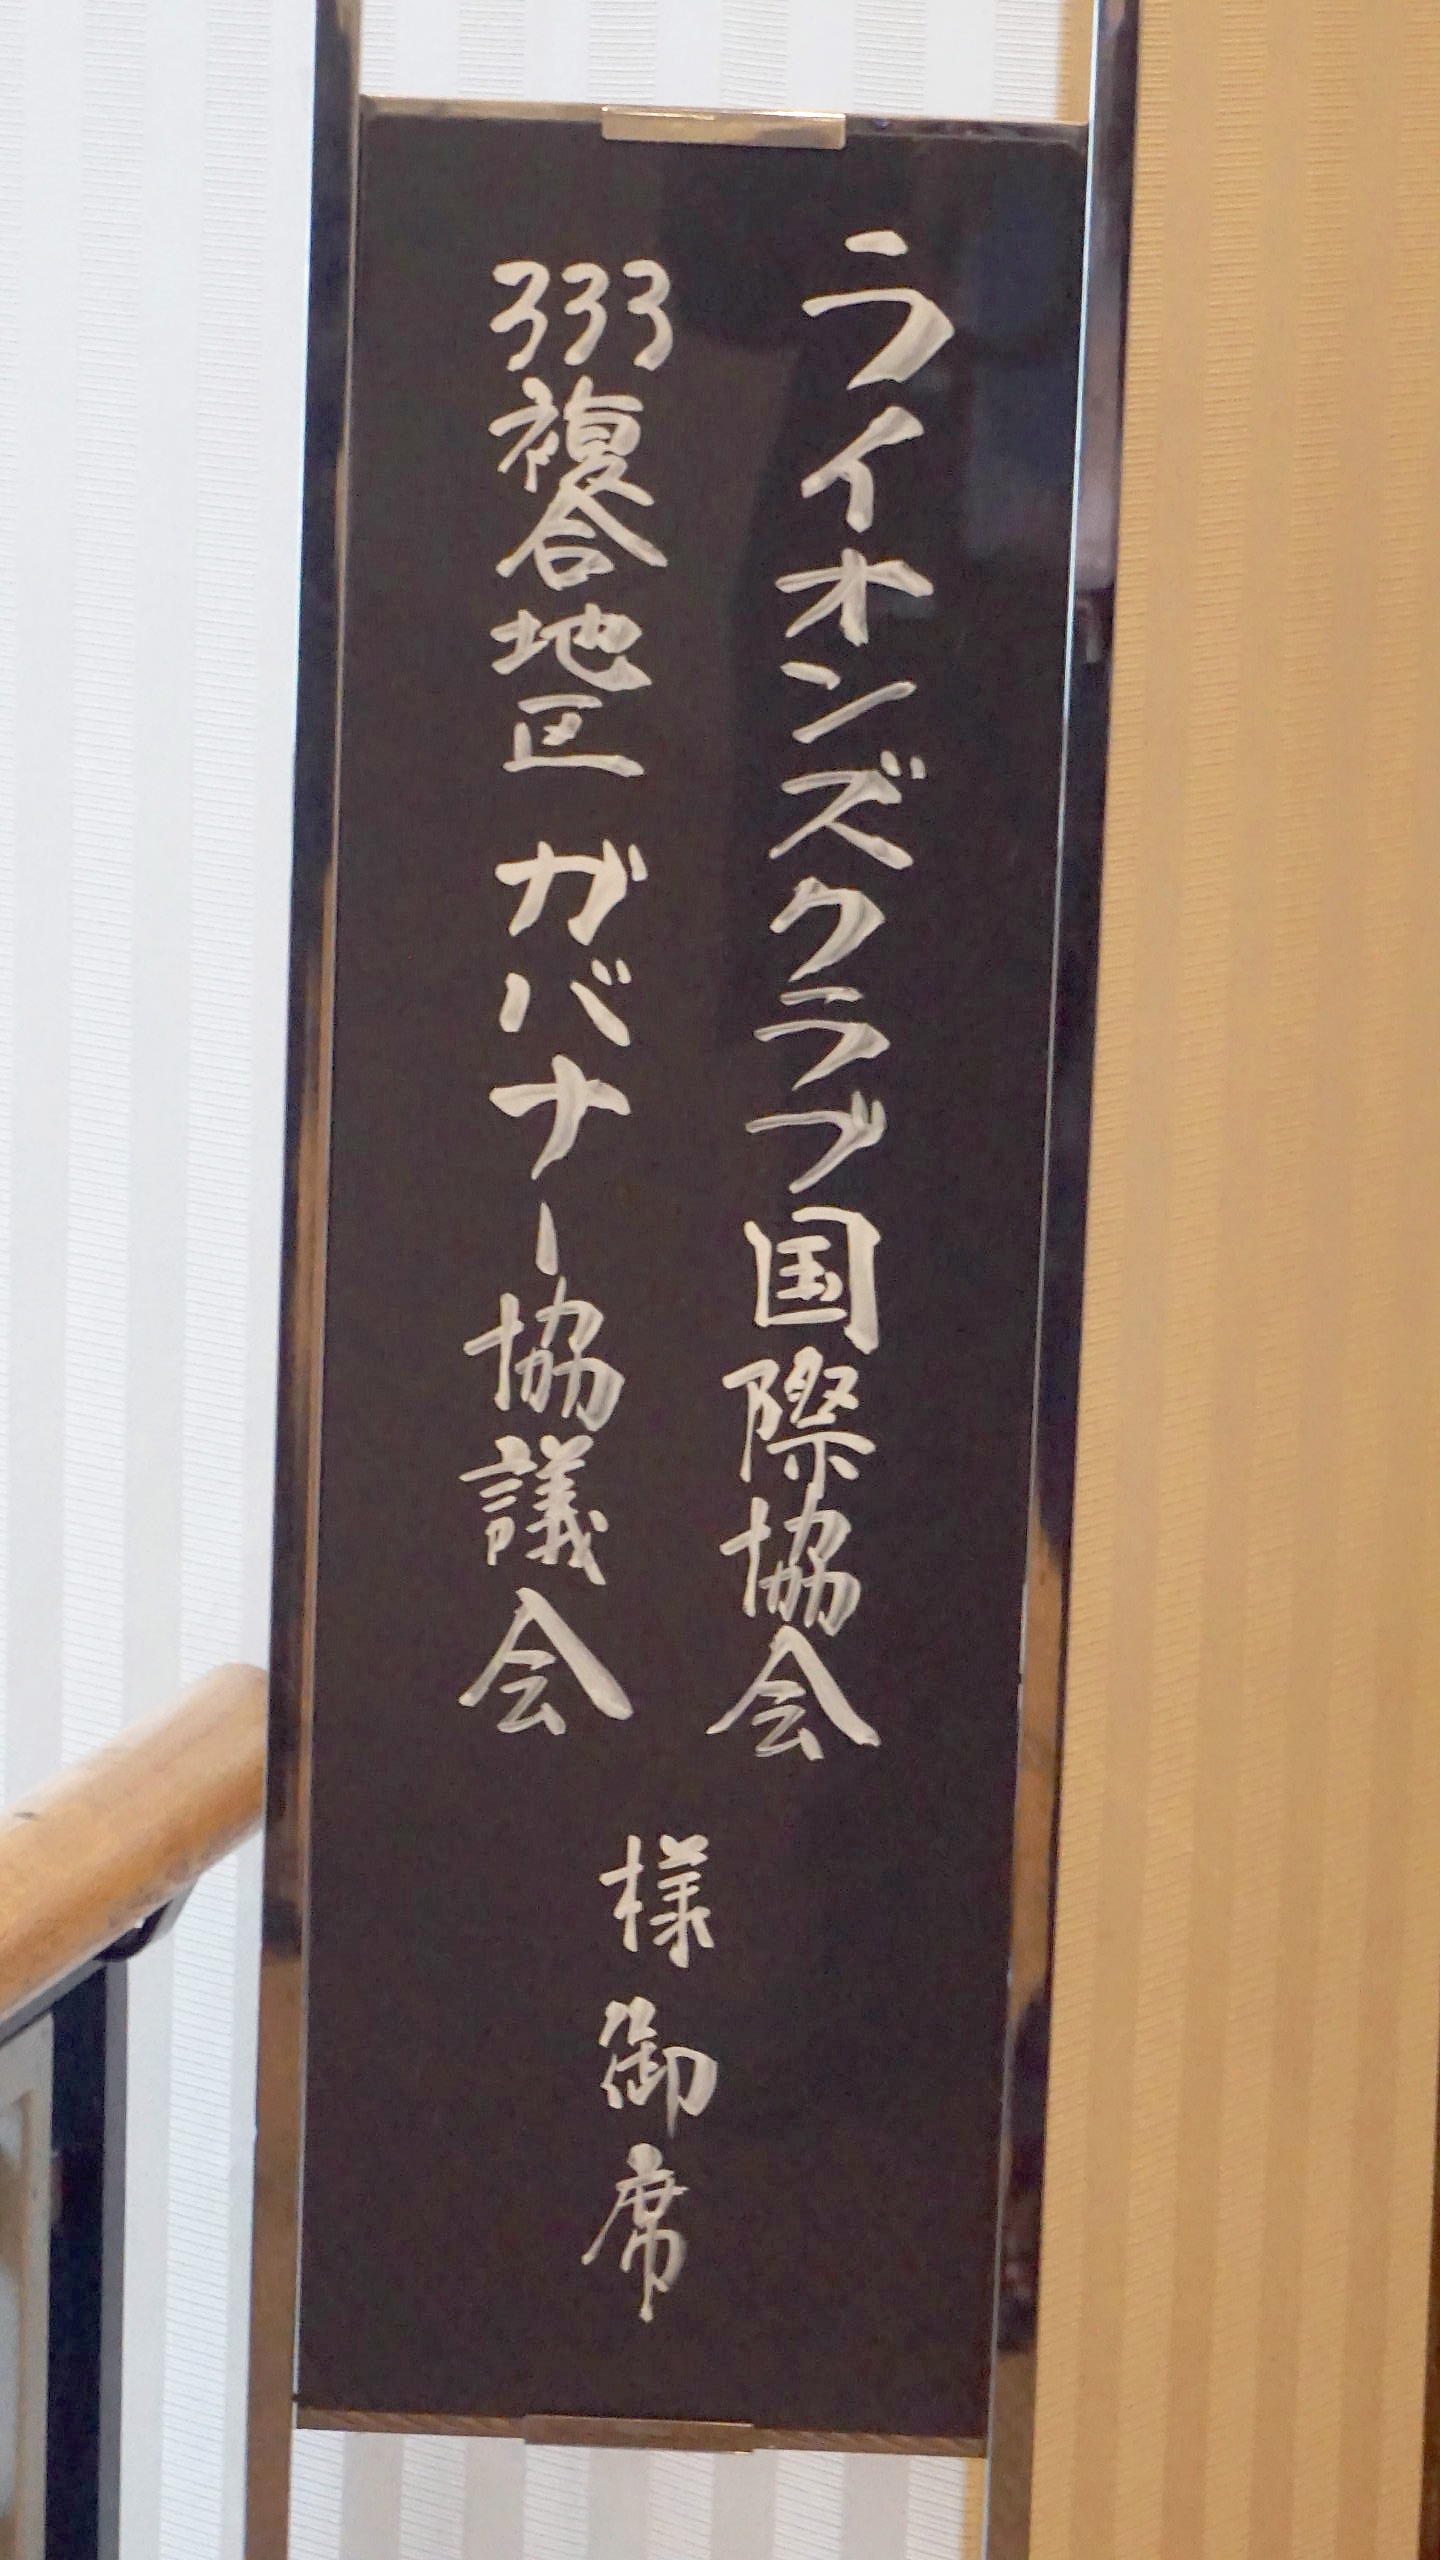 ライオンズクラブ国際協会
333複合地区 ガバナー協議会
様御席